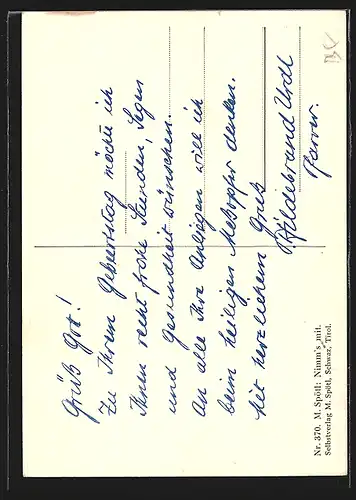 Grüß Gott!
Zu Ihrem Geburtstag möchte ich
Ihnen recht frohe Stunden, Segen
und Gesundheit wünschen.
An alle Ihre Anliegen will ich
beim heiligen Meßopfer denken.
Mit herzlichem Gruß
Hildebrand Urdl
Pfarrer.
Nr. 370. M. Spötl: Nimm's mit.
Selbstverlag M. Spötl, Schwaz, Tirol.